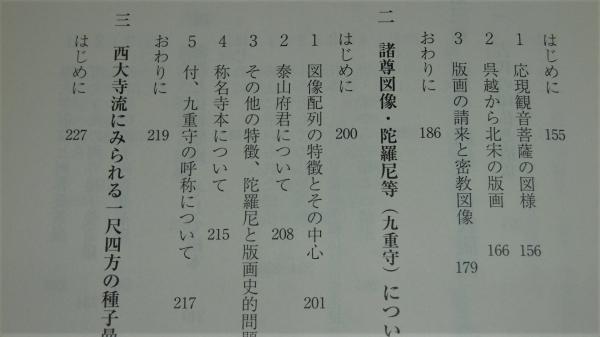 はじめに 155
1 応現観音菩薩の図様 156
2 呉越から北宋の版画 166
3 版画の請来と密教図像 179
おわりに 186
二 諸尊図像・陀羅尼等（九重守）につい
はじめに 200
1 図像配列の特徴とその中心 201
2 泰山府君について 208
3 その他の特徴、陀羅尼と版画史的問題
4 称名寺本について 215
5 付、九重守の呼称について 217
おわりに 219
三 西大寺流にみられる一尺四方の種子曼
はじめに 227